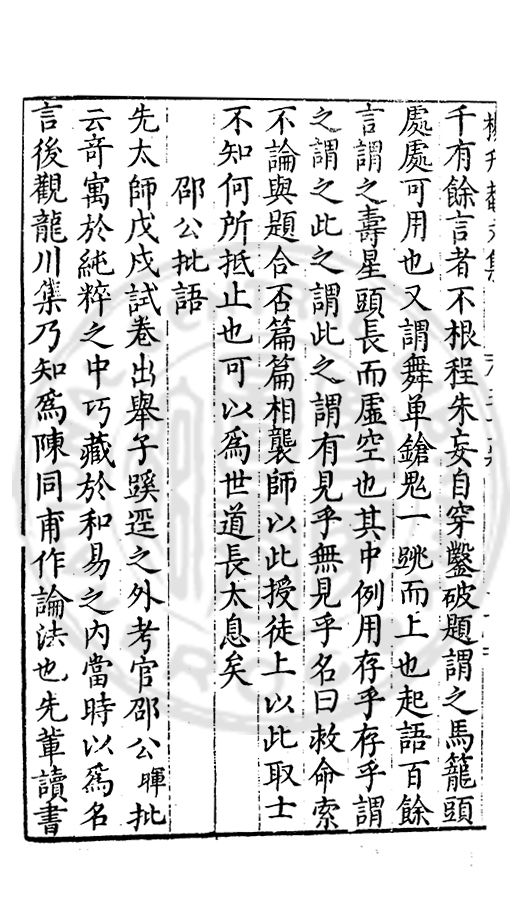 千有餘言者不根程朱妄自穿鑿破題謂之馬籠頭
處處可用也又謂舞單鎗鬼一跳而上也起語百餘
言謂之壽星頭長而虛空也其中例用存乎存乎謂
之謂之此之謂此之謂有見乎無見乎名曰救命索
不論與題合否篇篇相襲師以此授徒上以此取士
不知何所抵止也可以為世道長太息矣
邵公批語
先太師戊戌試卷出舉子蹊逕之外考官邵公暉批
云竒寓於純粹之中巧藏於和易之內當時以為名
言後觀龍川集乃知為陳同甫作論法也先軰讀書